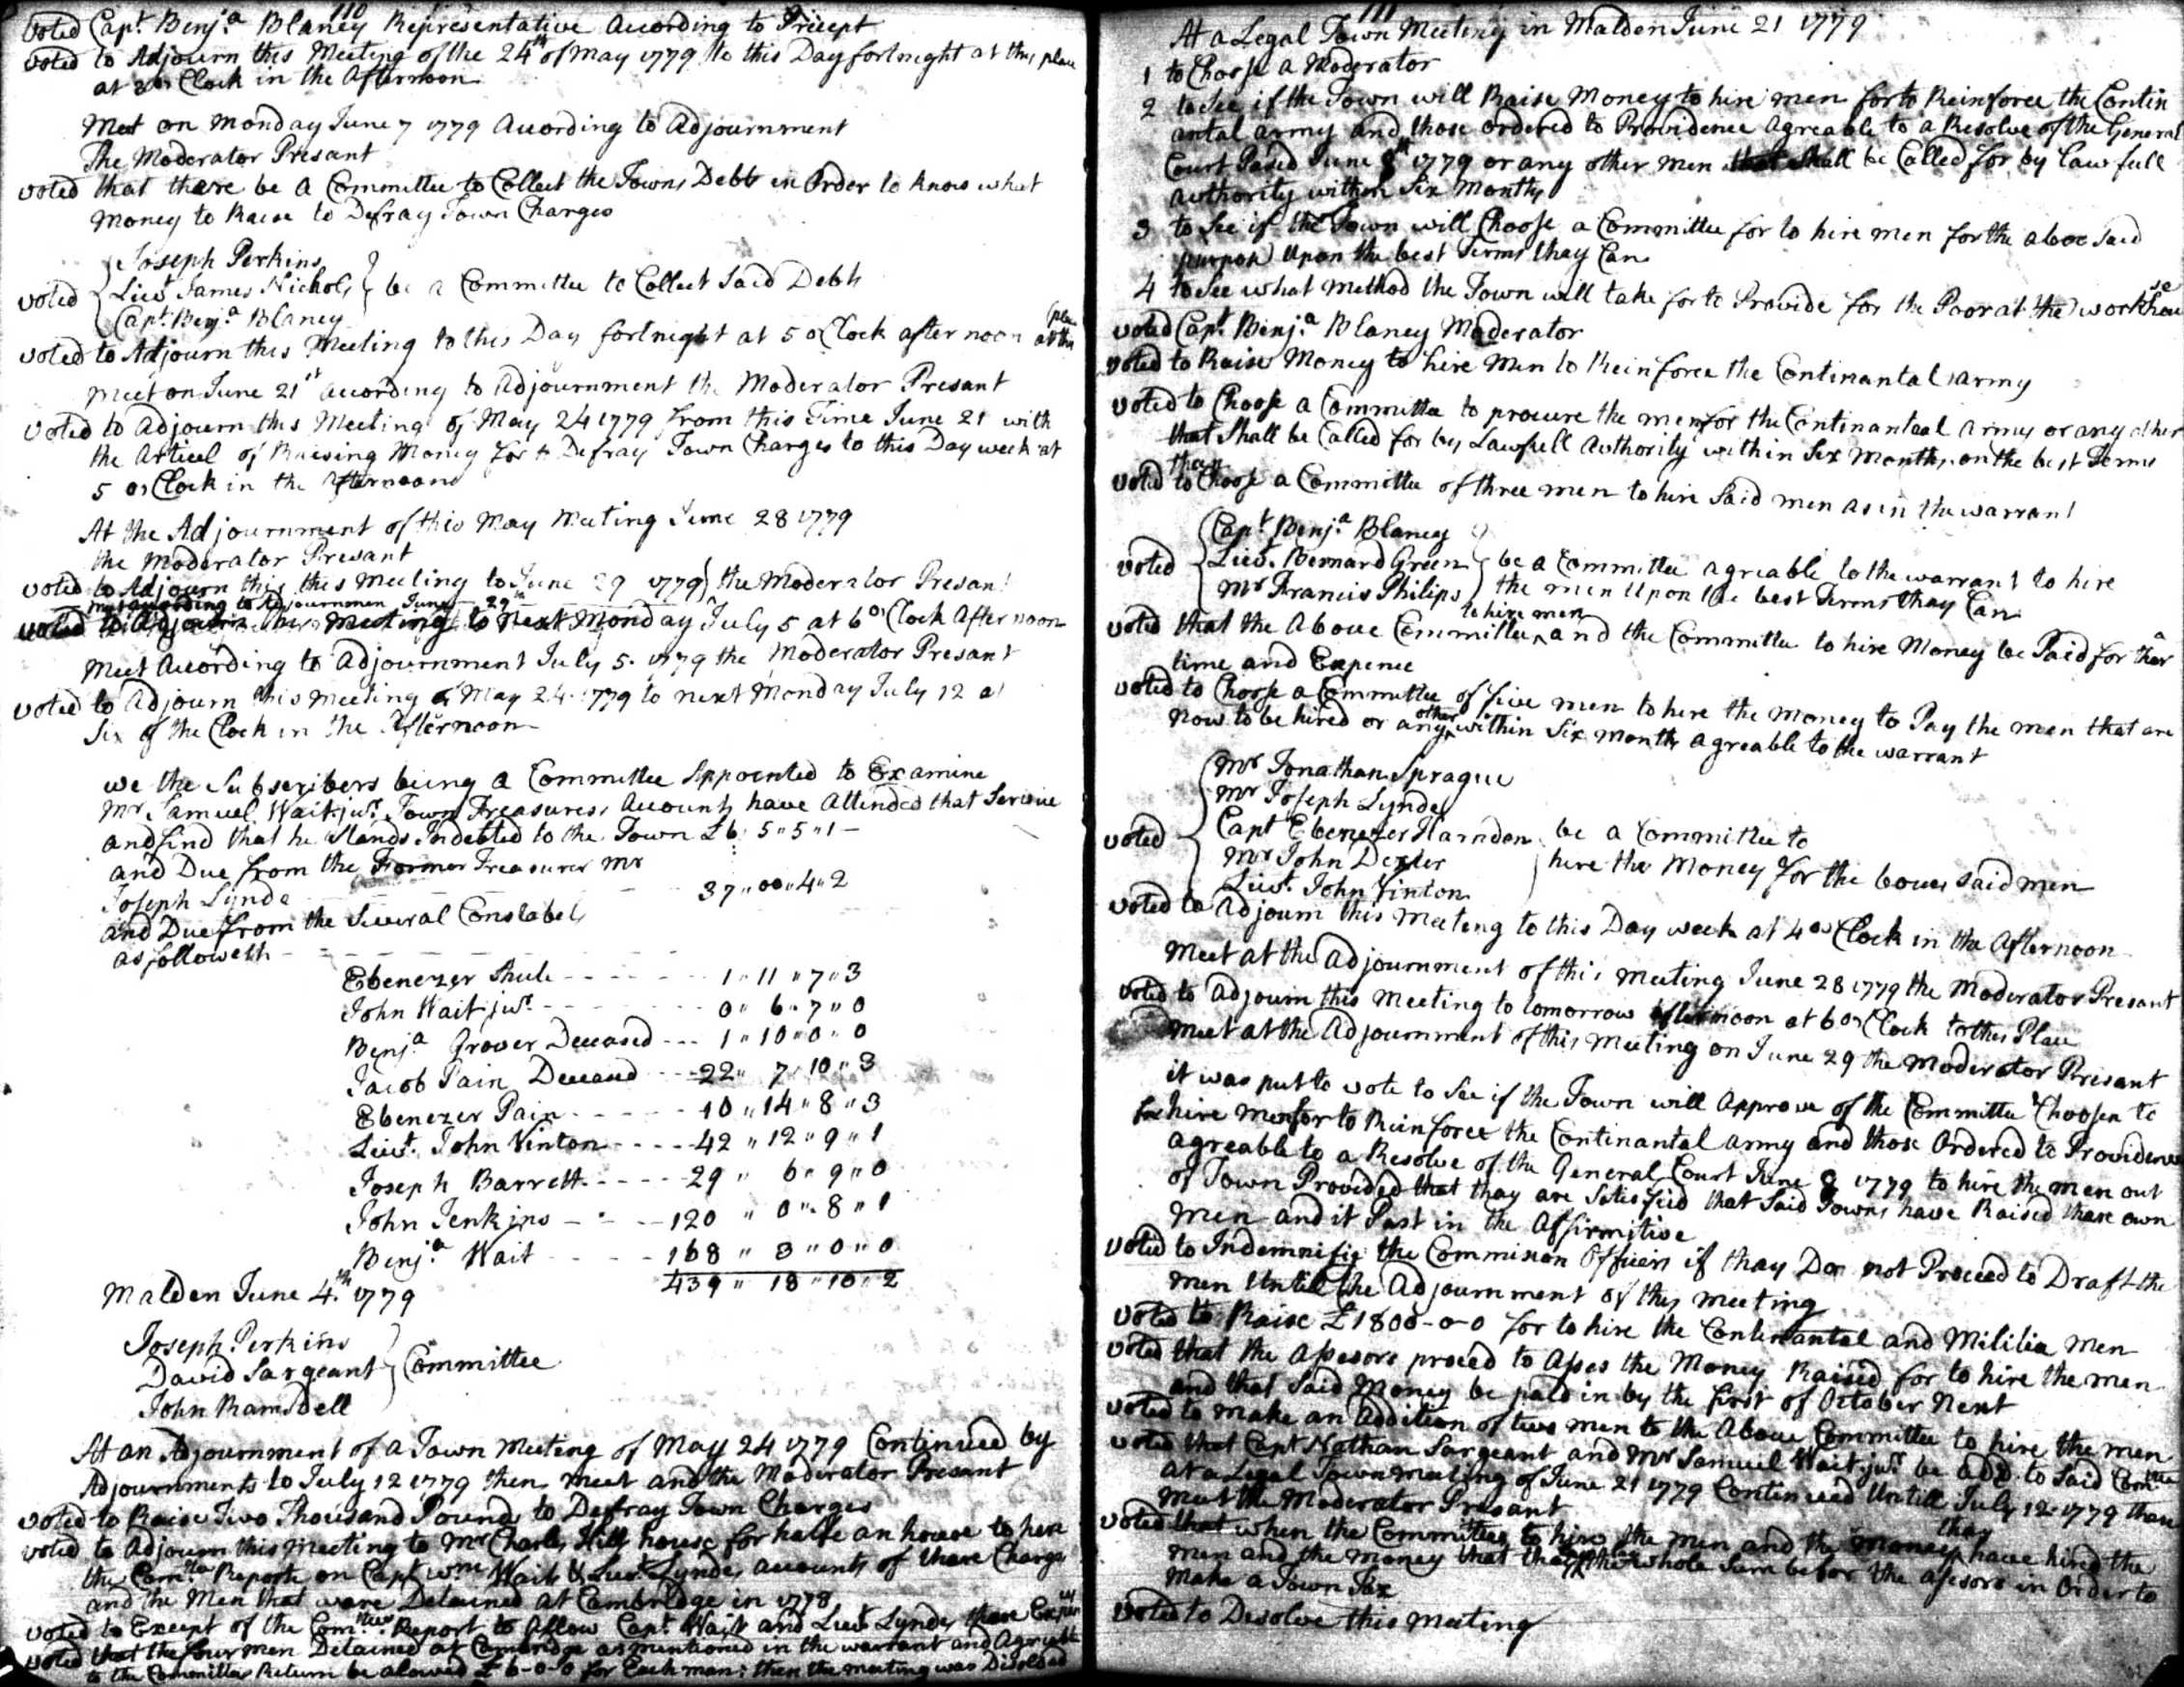 110
Voted Capt. Benja. Blaney Representative According to Precept
Voted to Adjourn this Meeting of the 24th of May 1779 to this Day fortnight at this place
at 2 o Clock in the Afternoon
Meet on Monday June 7 1779 According to Adjournment
The Moderator Presant
voted that thare be a Committee to Collect the Towns Debts in Order to know what
Money to Raise to Defray Town Charges
Joseph Perkins
voted Lieut. James Nichols be a Committee to Collect Said Debts
Capt. Benja. Blaney
voted to Adjourn this Meeting to this Day fortnight at 5 o Clock after noon at this place
Meet on June 21st According to Adjournment the Moderator Presant
voted to Adjourn this Meeting of May 24 1779 from this Time June 21 with
the Articel of Raising Money for to Defray Town Charges to this Day week at
5 o Clock in the Afternoon
At the Adjournment of this May Meeting June 28 1779
the Moderator Presant
voted to Adjourn this this Meeting to June 29 1779 the Moderator Presant
meet according to Adjournmen June 29th
voted to Adjourn this Meeting to next Monday July 5 at 6 o Clock After noon
Meet According to Adjournment July 5. 1779 the Moderator Presant
voted to Adjourn this Meeting of May 24 1779 to next Monday July 12 at
Six of the Clock in the Afternoon
we the Subscribers being a Committee Appointed to Examine
Mr. Samuel Wait jur. Town Treasurers Accounts have Attended that Service
and find that he Stands Indebted to the Town £6 : 5 " 5 " 1
and Due from the Former Treasurer Mr
Joseph Lynde 37 " 00 " 4 " 2
and Due from the Several Constabels
as followeth
Ebenezer Shute 1 " 11 " 7 " 3
John Wait jur. 0 " 6 " 7 " 0
Benja. Grover Deceased 1 " 10 " 0 " 0
Jacob Pain Deceasd 22 " 7 " 10 " 3
Ebenezer Pain 10 " 14 " 8 " 3
Lieut. John Vinton 42 " 12 " 9 " 1
Joseph Barrett 29 " 6 " 9 " 0
John Jenkins 120 " 0 " 8 " 1
Benja. Wait 168 " 3 " 0 " 0
439 " 18 " 10 " 2
Malden June 4th. 1779
Joseph Perkins
David Sargeant Committee
John Ramsdell
At an Adjournment of a Town Meeting of May 24 1779 Continued by
Adjournments to July 12 1779 then meet and the Moderator Presant
voted to Raise Two Thousand Pounds to Defray Town Charges
voted to Adjourn this Meeting to Mr Charles Hills house for halfe an houre to here
the Comtee Reports on Capt Wm Wait & Lieut Lynds accounts of thare Charge
and the Men that ware Detained at Cambridge in 1778
voted to Except of the Comtees Report to Allow Capt. Wait and Lieut Lynds thare Expences
voted that the four men Detained at Cambridge as mentioned in the warrant and Agreable
to the Committes Return be alowed £ 6-0-0 for Each man: then the meeting was Disolved
111
At a Legal Town Meeting in Malden June 21 1779
1 to Choose a Moderator
2 to See if the Town will Raise Money to hire men for to Reinforce the Contin
antal army and those ordered to Providence Agreable to a Resolve of the General
Court Pased June 8th 1779 or any other men that shall be Called for by Lawfull
authority within Six Months
3 to See if the Town will Choose a Committee for to hire men for the above Said
purpose Upon the best Terms thay Can
4 to See what method the Town will take for to Provide for the Poor at the workhouse
voted Capt. Benja. Blaney Moderator
Voted to Raise Money to hire Men to Reinforce the Continantal army
voted to Choose a Committee to procure the men for the Continantal Army or any other
that Shall be Called for by Lawfull Authority within Six Months on the best Terms
thay
voted to Choose a Committee of three men to hire Said men as in the warrant
Capt. Benja. Blaney
voted Lieut. Bernard Green be a Committee agreable to the warrant to hire
Mr Francis Philips the men Upon the best Terms thay Can
to hire men
voted that the Above Committee and the Committee to hire Money be Paid for thar
time and Expence
voted to Choose a Committee of five men to hire the Money to Pay the men that are
now to be hired or any other within Six months agreable to the warrant
Mr Jonathan Sprague
Mr Joseph Lynde
voted Capt Ebenezer Harnden be a Committee to
Mr John Dexter hire the Money for the boue said men
Lieut. John Vinton
voted to Adjourn this Meeting to this Day week at 4 o Clock in the Afternoon
Meet at the Adjournment of this Meeting June 28 1779 the Moderator Presant
voted to Adjourn this Meeting to tomorrow afternoon at 6 o Clock to this Place
Meet at the Adjournment of this Meeting on June 29 the Moderator Presant
it was put to vote to See if the Town will Approve of the Committee Choosen to
hire men for to Reinforce the Continantal army and those Ordered to Providence
agreable to a Resolve of the General Court June 8 1779 to hire the men out
of Town Provided that thay are Satisfied that Said Towns have Raised thare own
men and it Past in the Affirmitive
voted to Indemnifie the Commision Officers if thay Do not Proceed to Draft the
men Untill the Adjournment of this meeting
voted to Raise £1800-0-0 for to hire the Continantal and Militia men
voted that the Assesors proceed to Asses the Money Raised for to hire the men
and that Said Money be paid in by the first of October Next
voted to make an Addition of two men to the Above Committee to hire the men
voted that Capt Nathan Sargeant and Mr Samuel Wait jur be add to Said Comtee
At a Legal Town meeting of June 21 1779 Continued Untill July 12 1779 than
meet the Moderator Presant
voted that when the Committees to hire the men and the money thay have hired the
men and the money that thay the whole Sum befor the asesors in Order to
make a Town Tax
voted to Disolve this Meeting